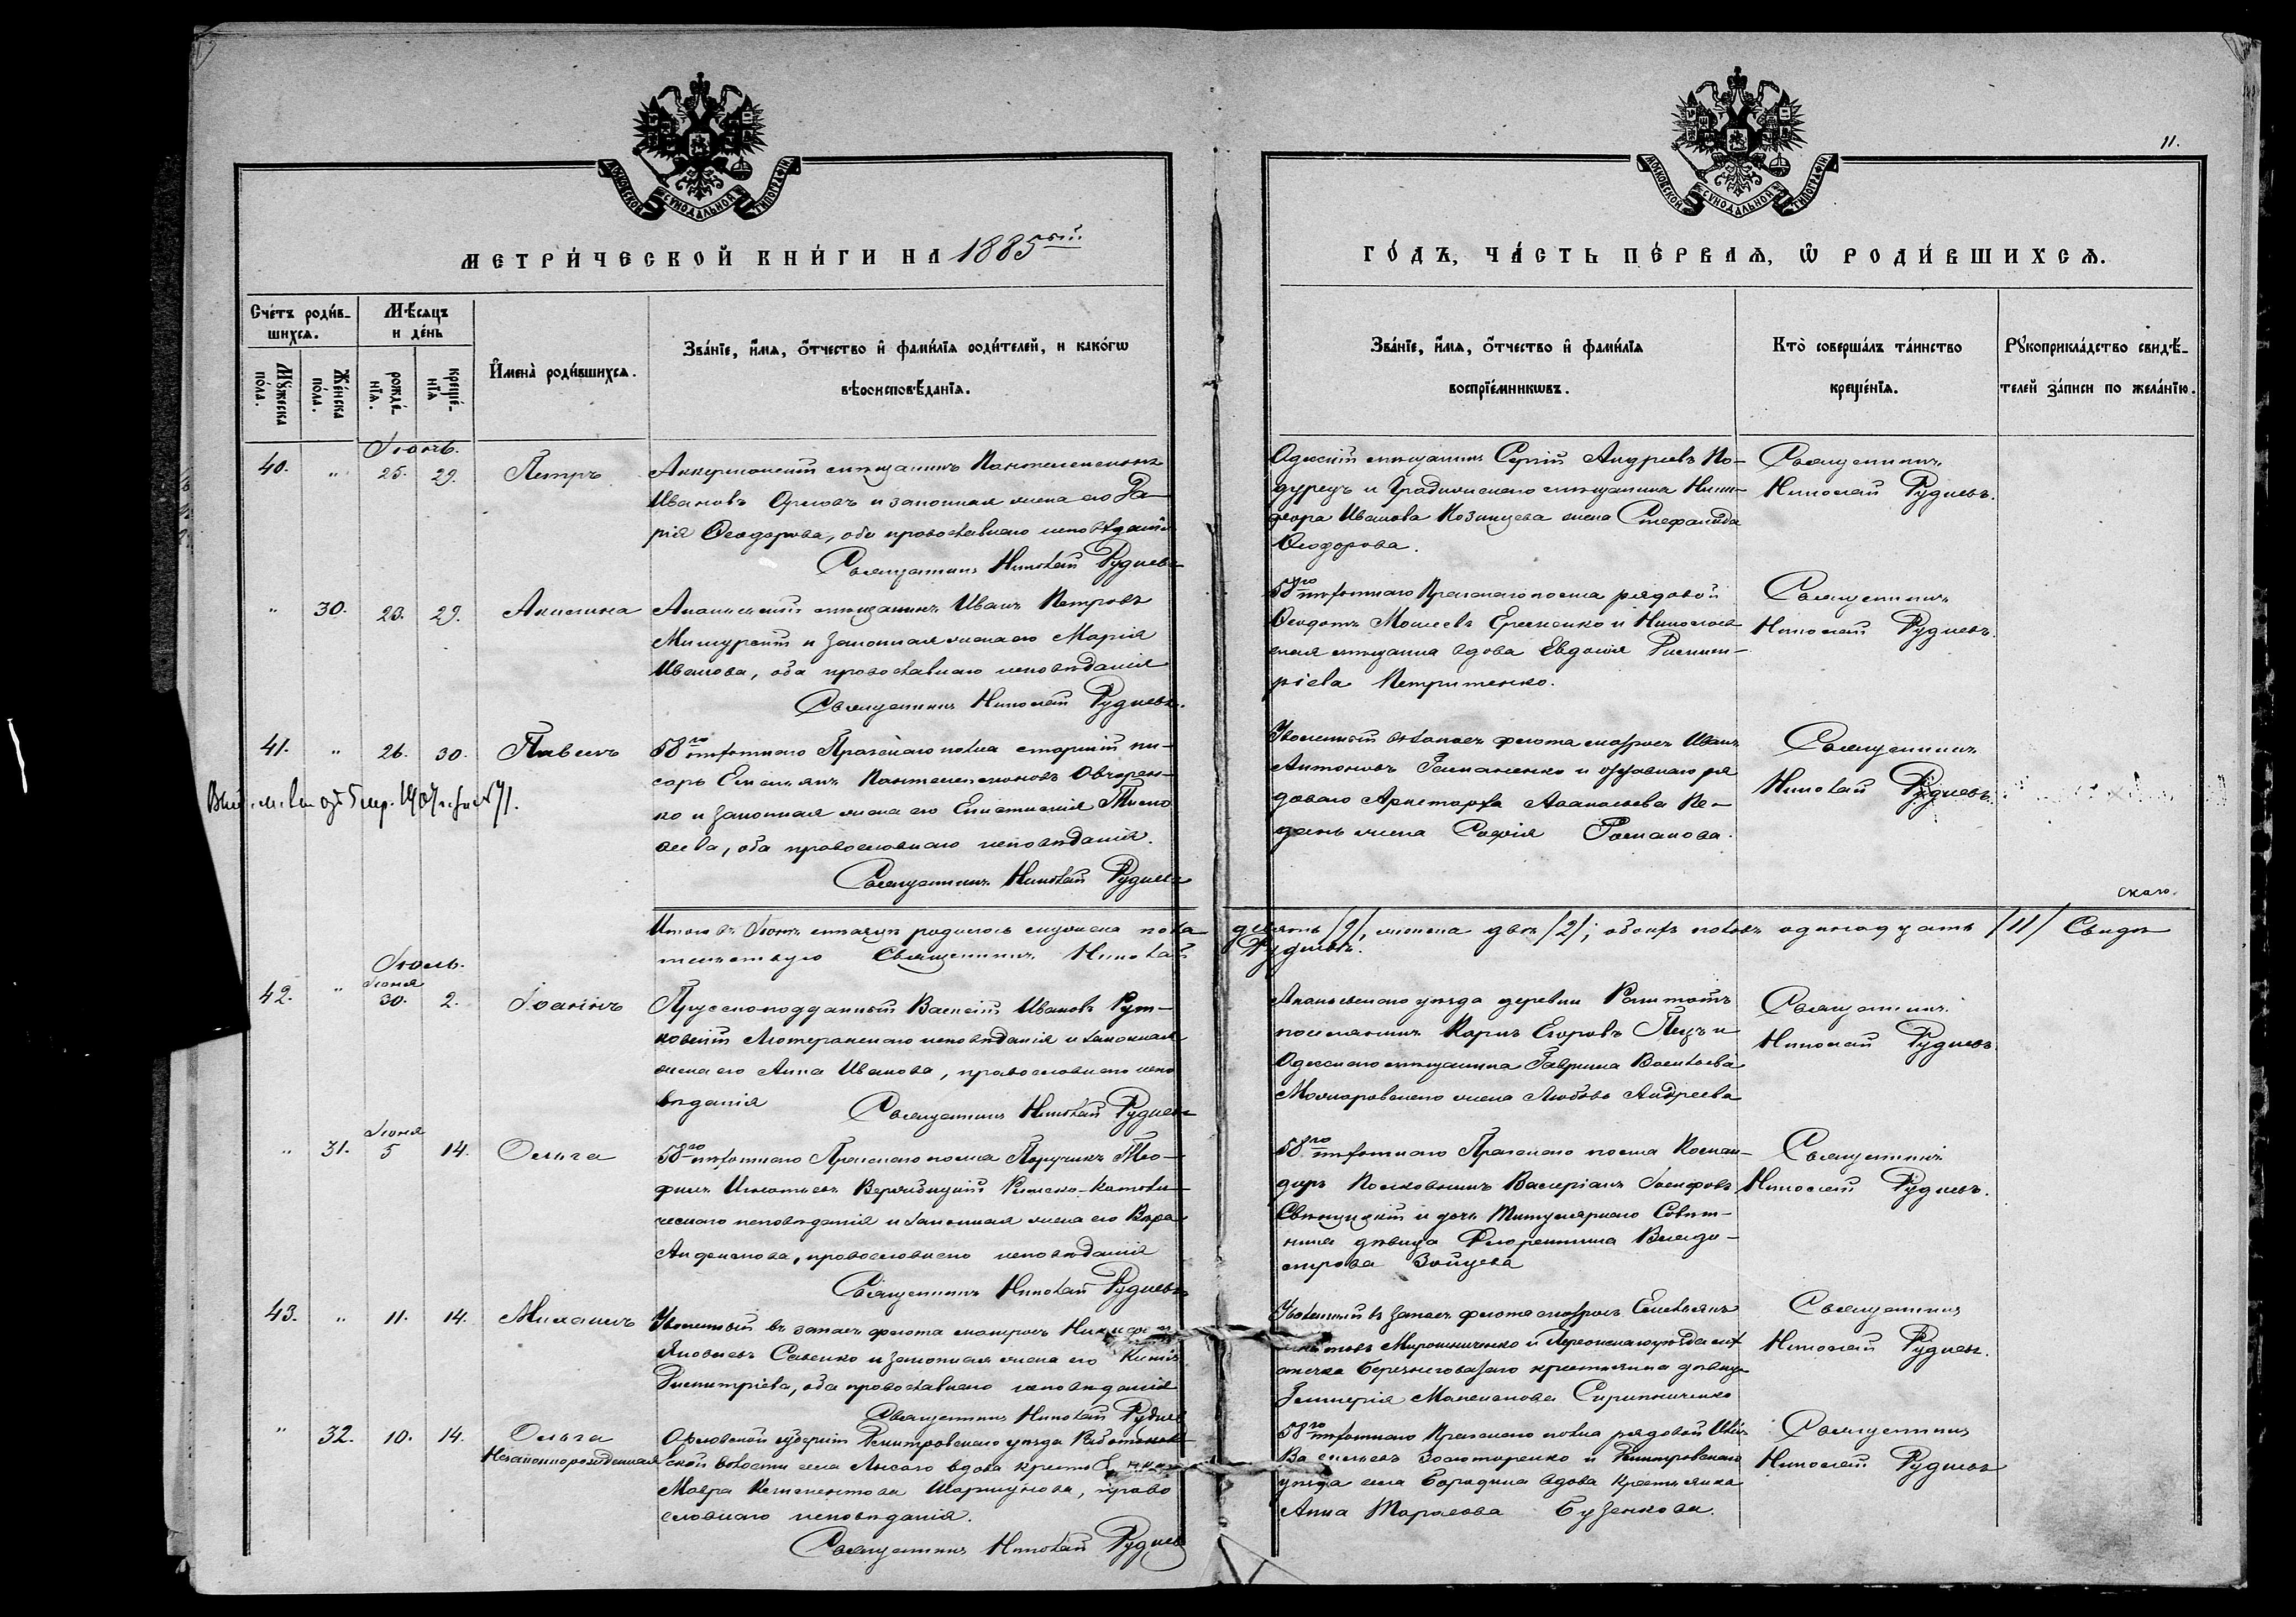 11.
МОСКОВСКОЙ СѴНОДАЛЬНОЙ ТИПОГРАФІИ
МОСКОВСКОЙ СѴНОДАЛЬНОЙ ТИПОГРАФІИ
МЕТРИ́ЧЕСКОЙ КНИ́ГИ НА 1885ый
ГО́ДЪ, ЧА́СТЬ ПЕ́РВАѦ, Ѡ РОДИ́ВШИХСѦ.
Сче́тъ роди́в-
шихсѧ.
Мѣ́сѧцъ
и де́нь
Мꙋ́жеска по́ла.
Же́нска по́ла.
рожде́-нїѧ.
креще́-нїѧ
И҆мена̀ роди́вшихсѧ.
Зва́нїе, и҆́мѧ, ѻ҆́тчество и҆ фами́лїѧ роди́телей, и како́гѡ
вѣроисповѣ́данїѧ.
Зва́нїе, и҆́мѧ, ѻ҆́тчество и҆ фами́лїѧ
воспрїе́мникѡвъ.
Кто̀ соверша́лъ та́инство
креще́нїѧ.
Рꙋкоприкла́дство свидѣ́-
телей за́писи по жела́нїю.
Іюнь.
40. " 25. 29. Петръ
Аккерманскій мѣщанинъ Пантелеимонъ
Ивановъ Орловъ и законная жена его Да-
рія Ѳеодорова, оба православнаго исповѣданія
Священникъ Николай Рудневъ
Одесскій мѣщанинъ Сергій Андреевъ По-
дурецъ и Градижскаго мѣщанина Ники-
фора Иванова Козинцева жена Стефанида
Ѳеодорова.
Священникъ
Николай Рудневъ.
" 30. 23. 29. Акилина
Ананьевскій мѣщанинъ Иванъ Петровъ
Мишурскій и законная жена его Марія
Иванова, оба православнаго исповѣданія
Священникъ Николай Рудневъ.
58го пѣхотнаго Прагскаго полка рядовой
Ѳеодотъ Моисеевъ Еременко и Николаев-
ская мѣщанка вдова Евдокія Димит-
ріева Петриченко.
Священникъ
Николай Рудневъ.
41. " 26. 30. Павелъ
58го пѣхотнаго Прагскаго полка старшій пи-
сарь Емельянъ Пантелеимоновъ Овчарен-
ко и законная жена его Епистимія Тимо-
ѳеева, оба православнаго исповѣданія.
Священникъ Николай Рудневъ
Уволенный въ запасъ флота матросъ Иванъ
Антоновъ Гапаненко и отставнаго ря
доваго Аристарха Аѳанасьева Ке-
дань жена Софія Романова.
Священникъ
Николай Рудневъ.
Итого въ Іюнѣ мѣсяцѣ родилось мужеска пола девять /9/, женска двѣ /2/; обоихъ половъ одинадцать /11/ Свидѣ
скаго.
тельствую Священникъ Николай Рудневъ.
Іюль.
42. " Іюня 30. 2. Іоаннъ
Прусскоподданный Василій Ивановъ Рут-
ковскій Лютеранскаго исповѣданія и законная
жена его Анна Иванова, православнаго испо
вѣданія
Священникъ Николай Рудневъ
Ананьевскаго уѣзда деревни
поселянинъ Карлъ Егоровъ Пецъ и
Одесскаго мѣщанина Гавріила Васильева
жена Любовь Андреева
Священникъ
Николай Рудневъ
" 31. Іюня 5 14. Ольга
58го пѣхотнаго Прагскаго полка Поручикъ Тео-
филъ Игнатьевъ Вержбицкій Римско-католи-
ческаго исповѣданія и законная жена его Вѣра
православнаго исповѣданія
Священникъ Николай Рудневъ
58го пѣхотнаго Прагскаго полка Коман-
диръ Полковникъ Валеріанъ Іосифовъ
Свѣнцицкій и дочь Титулярнаго Совѣт-
ника дѣвица Флорентина
Зайцева
Священникъ
Николай Рудневъ.
43. " 11. 14. Михаилъ
Уволенный въ запасъ флота матросъ
Яковлевъ Савенко и законная жена его
Димитріева, оба православнаго исповѣданія
Священникъ Николай Рудневъ
Уволенный въ запасъ флота матросъ Емельянъ
Мирошниченко и Херсонскаго уѣзда мѣ
стечка Березнеговатаго крестьянина дѣвица
Гликерія Скрипниченко
Священникъ
Николай Рудневъ.
" 32. 10. 14. Ольга
Незаконнорожденная
Орловской губерніи Димитровскаго уѣзда
ской волости села Лысаго вдова крестьянка
Мавра Климентова Шаршукова, право
славнаго исповѣданія.
Священникъ Николай Рудневъ
58го пѣхотнаго Прагскаго полка рядовой Иванъ
Васильевъ Золотаренко и Димитровскаго
уѣзда села Бородина вдова крестьянка
Анна Тарасова Бузенкова.
Священникъ
Николай Рудневъ